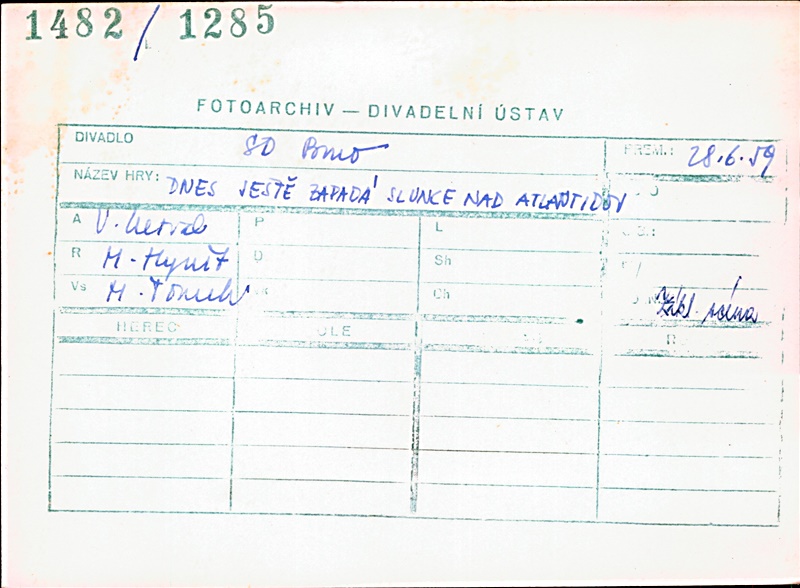 1482/1285
FOTOARCHIV — DIVADELNÍ ÚSTAV
DIVADLO SD Brno PREM.: 28.6.59
NÁZEV HRY: DNES JEŠTĚ ZAPADÁ SLUNCE NAD ATLANTIDOU
A V. Nezval P L
R M. Hynšt D Sh
Vs M. Tomek Ch zákl. scéna
HEREC